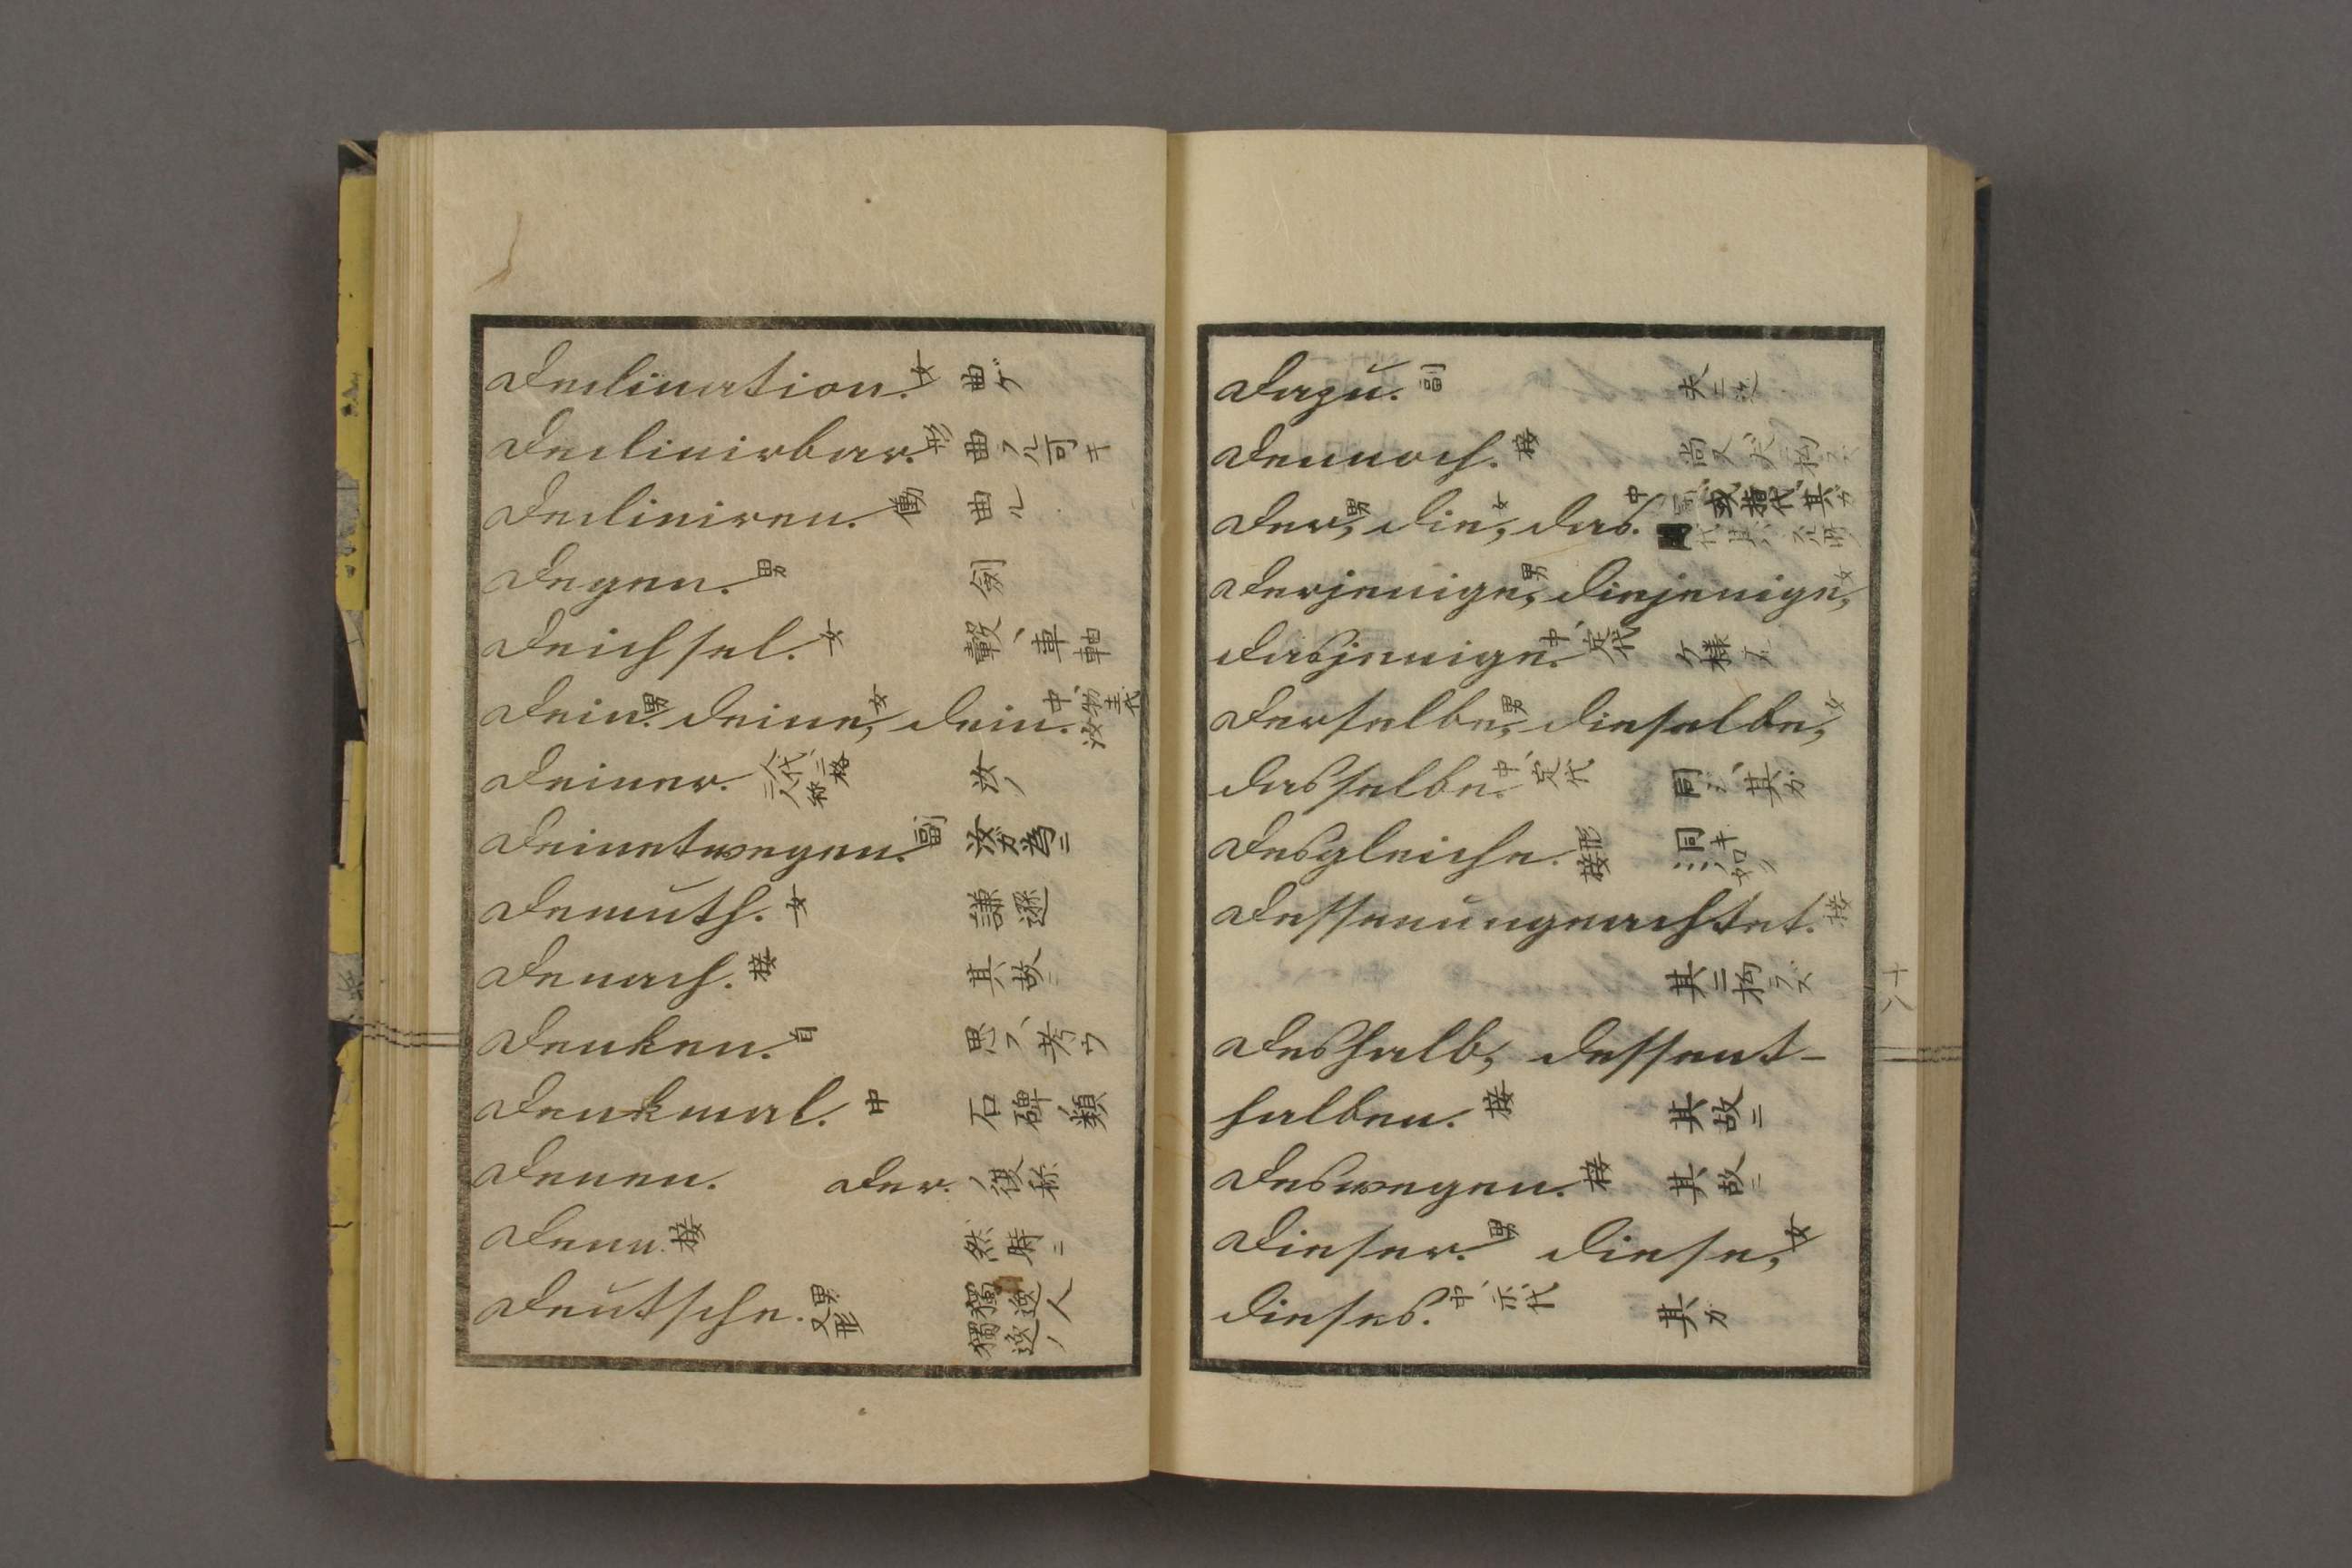 Declination. 女 曲ゲ
Declinirbar. 形 曲ル可キ
Decliniren. 働 曲ル
Degen. 男 剣
Deichsel. 女 轅、車軸
Dein. 男 deine, 女 dein. 中、物主代 汝
Deiner. 人代、二格 二人称 汝ノ
Deinetwegen. 副 汝ガ為ニ
Demuth. 女 謙遜
Denach. 接 其故ニ
Denken. 自 思フ、考ウ
Denkmal. 中 石碑ノ類
Denen. Der. ノ復称
Denn. 接 然時ニ
Deutsche. 男 又形 獨逸人 獨逸ノ
Dazu. 副 夫ニ迄
Dennoch. 接 尚又
Der, 男 die, 女 das. 中
Derjenige, 男 diejenige, 女
dasjenige. 中、定代 ケ様
Derselbe, 男 dieselbe, 女
dasselbe. 中、定代 同ジ、其ガ
Desgleiche. 形 接 同キ
Dessenungeachtet. 接
其ニ拘ラズ
Deshalb, dessent-
halben. 接 其故ニ
Deswegen. 接 其故ニ
Dieser. 男 diese, 女
dieses. 中、示代 其ガ
十八